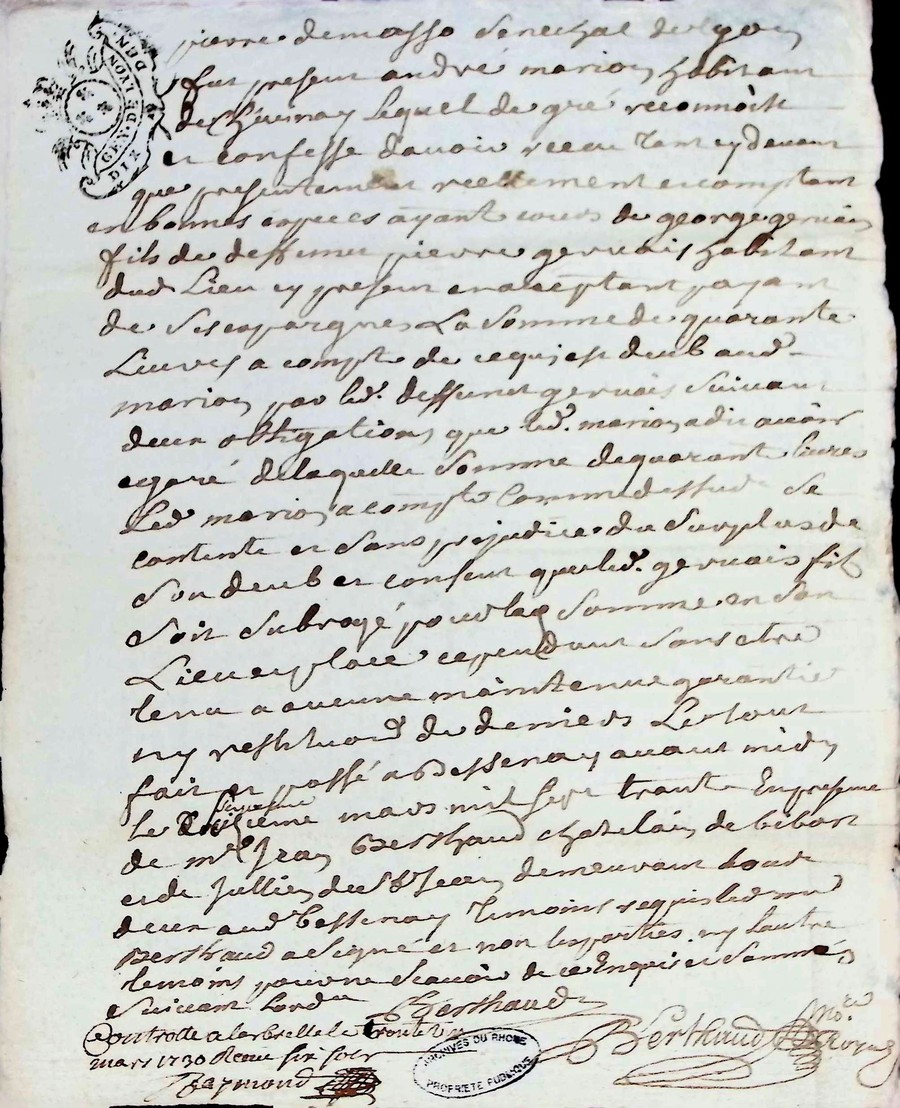 GEN. DE LYON
DIX DEN
pierre demasso Senechal de Lyon
fut present andré marion habitant
de Lequel de gré reconnoist
et confesse davoir receu tant cy devant
que presentement reellement et comptant
en bonnes especes ayant cours de george gervais
fils de deffunct pierre gervais habitant
dud Lieu cy present et acceptant payant
de Ses epargnes La Somme de quarante
Livres a compte de ce qui est deub aud
marion par led. deffunct gervais Suivant
deux obligations que led. marion a dit avoir
egaré de laquelle Somme de quarant livres
Led marion a compte Comme dessus Se
contente et Sans prejudice du Surplus de
Son deub et consent que led. gervais fils
Soit Subrogé pour lad Somme en Son
Lieu et place cependant Sans etre
tenu a aucune maintenue garantie
ny restituon de deniers Le tout
fait et passé a Bessenay avant midy
le mars mil Sept trante En presence
de me Jean Berthaud chatelain de bibost
et de Jullien demeurant
aud bessenay temoins requis led me
Berthaud a Signé et non les parties ny Lautre
temoins pour ne Scavoir de ce Enquis et Sommes
Suivant Lord
Berthaud
Berthaud
Controllé a larbrelle le trente
mars 1730 Receu six sols
Raymond
ARCHIVES DU RHONE
PROPRIETE PUBLIQUE